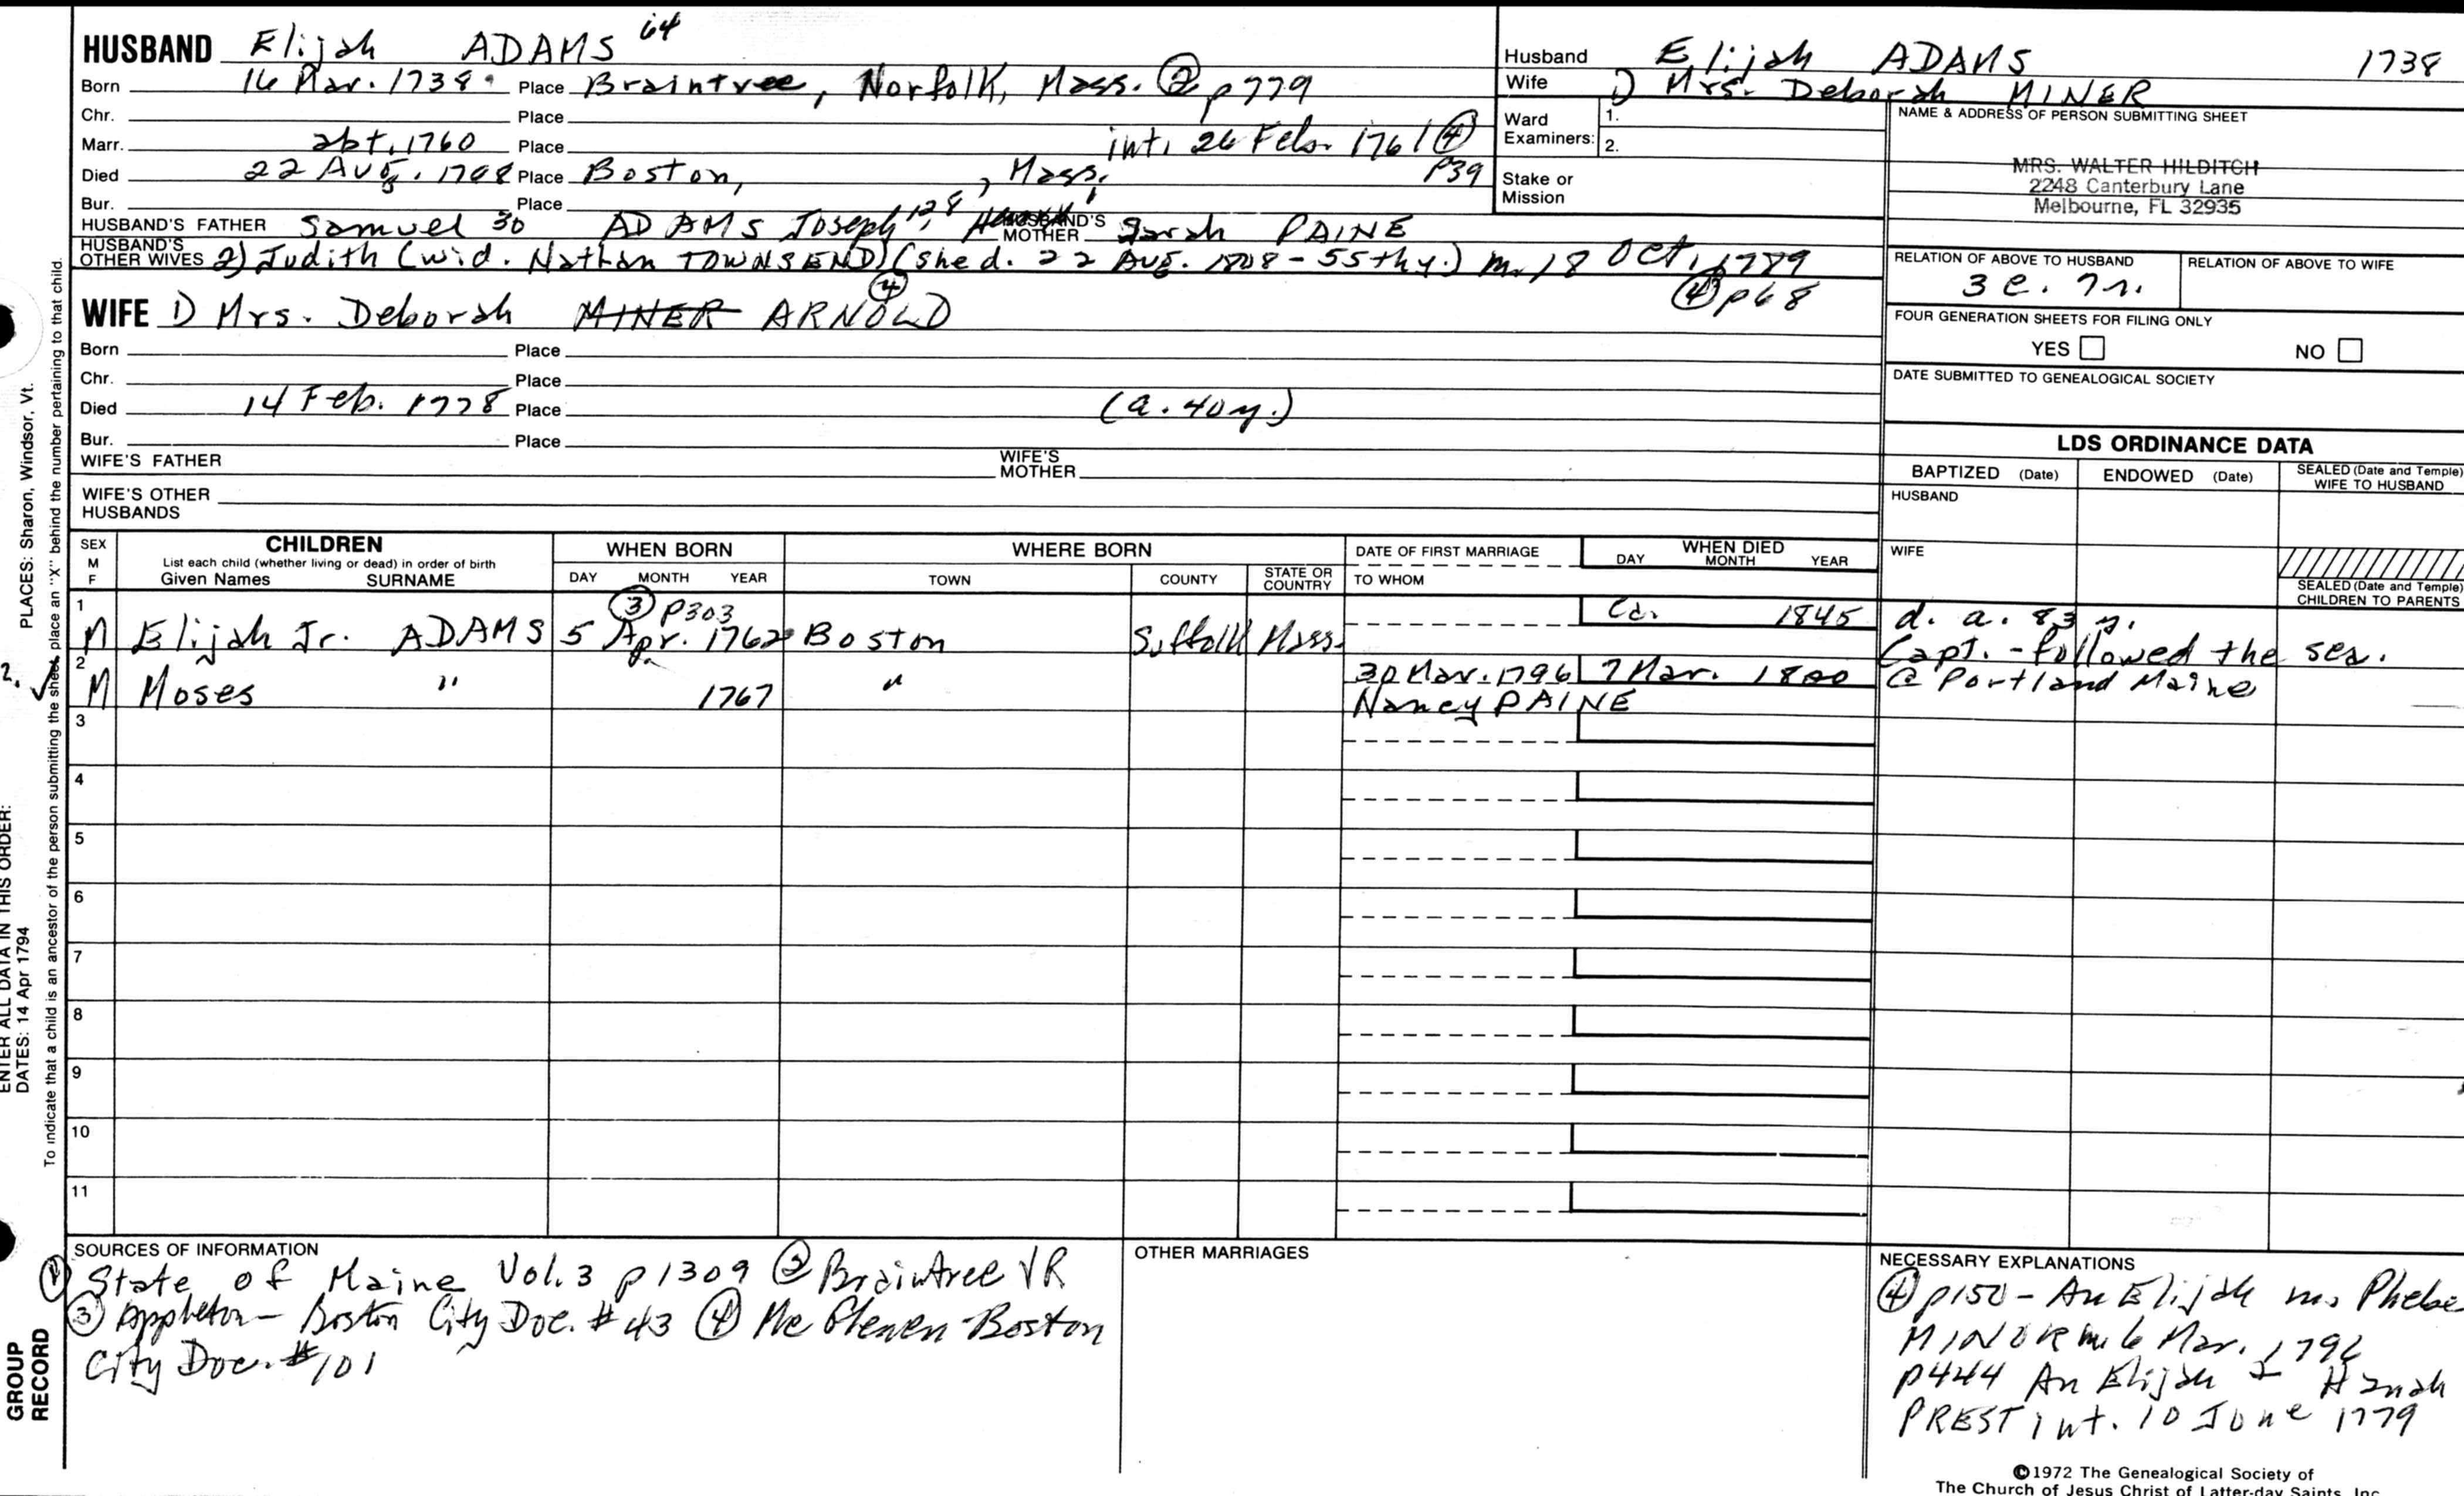 HUSBAND Elijah ADAMS 64
Born 16 Mar. 1738 Place Braintree, Norfolk, Mass. ② p779
Chr. Place
Marr. abt. 1760 Place int. 26 Feb. 1761 ④ p39
Died 22 Aug. 1798 Place Boston, , Mass.
Bur. Place
HUSBAND'S FATHER Samuel 30 ADAMS Joseph 128, HUSBAND'S MOTHER Sarah PAINE
HUSBAND'S OTHER WIVES 2) Judith (wid. Nathan TOWNSEND) (she d. 22 Aug. 1808 - 55th y.) m. 18 Oct. 1789
④ p68
WIFE 1) Mrs. Deborah MINER ARNOLD ④
Born Place
Chr. Place
Died 14 Feb. 1778 Place (a. 40 y.)
Bur. Place
WIFE'S FATHER WIFE'S MOTHER
WIFE'S OTHER HUSBANDS
Husband Elijah ADAMS 1738
Wife 1) Mrs. Deborah MINER
Ward Examiners: 1.
2.
Stake or Mission
NAME & ADDRESS OF PERSON SUBMITTING SHEET
MRS. WALTER HILDITCH
2248 Canterbury Lane
Melbourne, FL 32935
RELATION OF ABOVE TO HUSBAND RELATION OF ABOVE TO WIFE
3 c. 7 r.
FOUR GENERATION SHEETS FOR FILING ONLY
YES NO
DATE SUBMITTED TO GENEALOGICAL SOCIETY
LDS ORDINANCE DATA
BAPTIZED (Date) ENDOWED (Date) SEALED (Date and Temple) WIFE TO HUSBAND
HUSBAND
WIFE
SEALED (Date and Temple) CHILDREN TO PARENTS
SEX M F
CHILDREN
List each child (whether living or dead) in order of birth
Given Names SURNAME
WHEN BORN
DAY MONTH YEAR
WHERE BORN
TOWN COUNTY STATE OR COUNTRY
DATE OF FIRST MARRIAGE
TO WHOM
WHEN DIED
DAY MONTH YEAR
1 ③ p303 Ca. 1845 d. a. 83 y.
M Elijah Jr. ADAMS 5 Apr. 1762 Boston Suffolk Mass. Capt. - followed the sea.
2 30 Mar. 1796 7 Mar. 1800 @ Portland Maine
M Moses " 1767 " Nancy PAINE
3
4
5
6
7
8
9
10
11
SOURCES OF INFORMATION
① State of Maine Vol. 3 p1309 ② Braintree VR
③ Appleton - Boston City Doc. #43 ④ Boston
City Doc. #101
OTHER MARRIAGES
NECESSARY EXPLANATIONS
④ p150 - An Elijah m. Phebe
MINOR 6 Mar.
p444 An Elijah & Hanah
PREST int. 10 June 1779
©1972 The Genealogical Society of
The Church of Jesus Christ of Latter-day Saints, Inc.
PLACES: Sharon, Windsor, Vt.
To indicate that a child is an ancestor of the person submitting the sheet, place an "X" behind the number pertaining to that child.
2.
ENTER ALL DATA IN THIS ORDER:
DATES: 14 Apr 1794
GROUP
RECORD